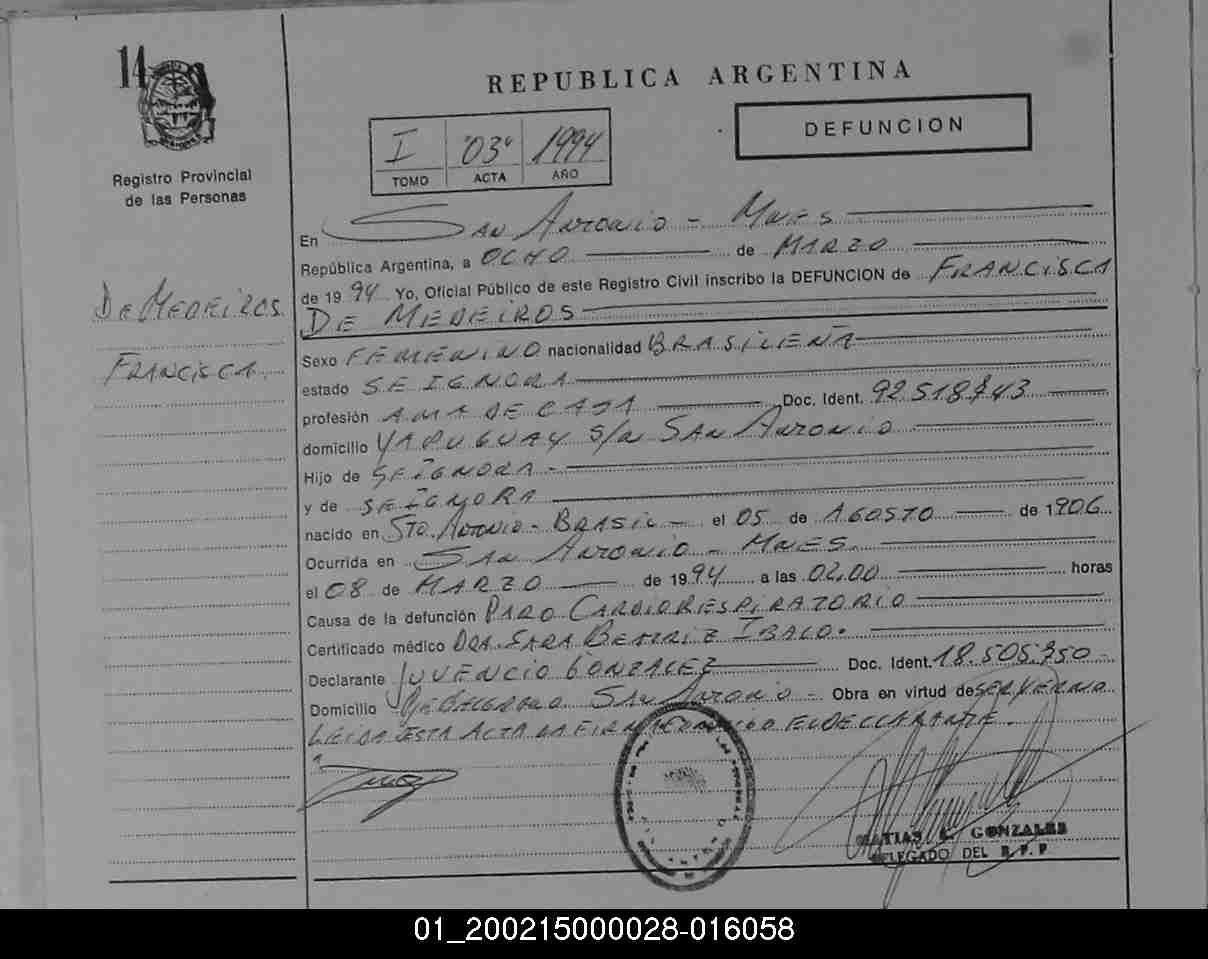 14
REPUBLICA ARGENTINA
DEFUNCION
I "03" 1994
TOMO ACTA AÑO
Registro Provincial
de las Personas
DE MEDEIROS
FRANCISCA
En SAN ANTONIO - MNES
República Argentina, a OCHO de MARZO
de 1994 Yo, Oficial Público de este Registro Civil inscribo la DEFUNCION de FRANCISCA
DE MEDEIROS
Sexo FEMENINO nacionalidad BRASILEÑA
estado SE IGNORA
profesión AMA DE CASA Doc. Ident. 92.518.743
domicilio YAPUGUAY S/N SAN ANTONIO
Hijo de SE IGNORA -
y de SE IGNORA
nacido en STO. ANTONIO - BRASIL - el 05 de AGOSTO de 1906
Ocurrida en SAN ANTONIO - MNES.
el 08 de MARZO de 1994 a las 02,00 horas
Causa de la defunción PARO CARDIORESPIRATORIO
Certificado médico DRA. SARA BEATRIZ
Declarante JUVENCIO GONZALEZ Doc. Ident. 18.505.750 -
Domicilio SAN ANTONIO - Obra en virtud de SER YERNO
LEIDA ESTA ACTA LA FIRMA CONMIGO EL DECLARANTE.
MATIAS GONZALES
DELEGADO DEL R.P.P
01_200215000028-016058